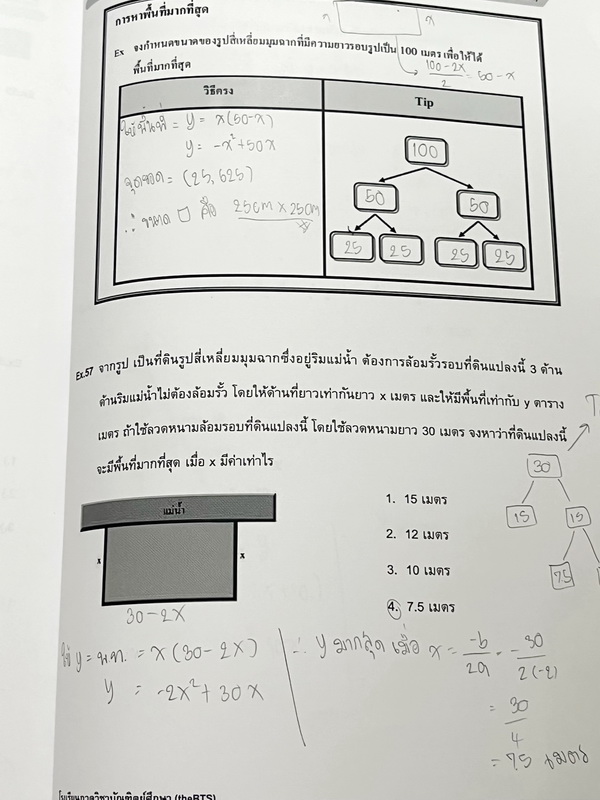 การหาพื้นที่มากที่สุด
x x
Ex จงกำหนดขนาดของรูปสี่เหลี่ยมมุมฉากที่มีความยาวรอบรูปเป็น 100 เมตร เพื่อให้ได้
พื้นที่มากที่สุด
100-2x / 2 = 50-x
วิธีตรง
Tip
ให้พื้นที่ = y = x(50-x)
y = -x²+50x
จุดยอด = (25, 625)
∴ ขนาด □ คือ 25cm x 25cm
100
50 50
25 25 25 25
Ex.57 จากรูป เป็นที่ดินรูปสี่เหลี่ยมมุมฉากซึ่งอยู่ริมแม่น้ำ ต้องการล้อมรั้วรอบที่ดินแปลงนี้ 3 ด้าน
ด้านริมแม่น้ำไม่ต้องล้อมรั้ว โดยให้ด้านที่ยาวเท่ากันยาว x เมตร และให้มีพื้นที่เท่ากับ y ตาราง
เมตร ถ้าใช้ลวดหนามล้อมรอบที่ดินแปลงนี้ โดยใช้ลวดหนามยาว 30 เมตร จงหาว่าที่ดินแปลงนี้
จะมีพื้นที่มากที่สุด เมื่อ x มีค่าเท่าไร
แม่น้ำ
x x
30-2x
1. 15 เมตร
2. 12 เมตร
3. 10 เมตร
4. 7.5 เมตร
30
15 15
7.5
ให้ y = พ.ท. = x(30-2x)
y = -2x²+30x
∴ y มากสุด เมื่อ x = -b/2a = -30/2(-2)
= 30/4
= 7.5 เมตร
โรงเรียนกวดวิชาบัณฑิตย์ศึกษา (theBTS)